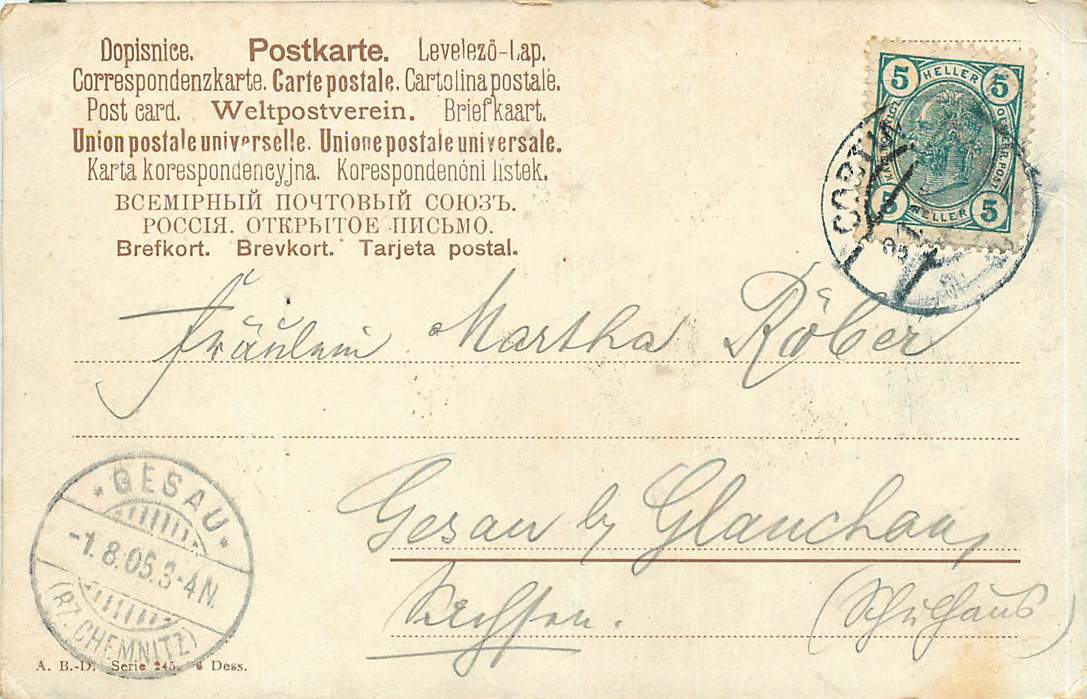 Dopisnice. Postkarte. Levelezö-Lap.
Correspondenzkarte. Carte postale. Cartolina postale.
Post card. Weltpostverein. Briefkaart.
Union postale universelle. Unione postale universale.
Karta korespondencyjna. Korespondenčni listek.
ВСЕМІРНЫЙ ПОЧТОВЫЙ СОЮЗЪ.
РОССІЯ. ОТКРЫТОЕ ПИСЬМО.
Brefkort. Brevkort. Tarjeta postal.
5 HELLER 5
5 HELLER 5
Fräulein Martha Röber
Gesau by Glauchau,
Sachsen. (Schulhaus)
* GESAU *
-1.8.05.3-4N.
(BZ. CHEMNITZ)
A. B.-D. Serie 245. 6 Dess.